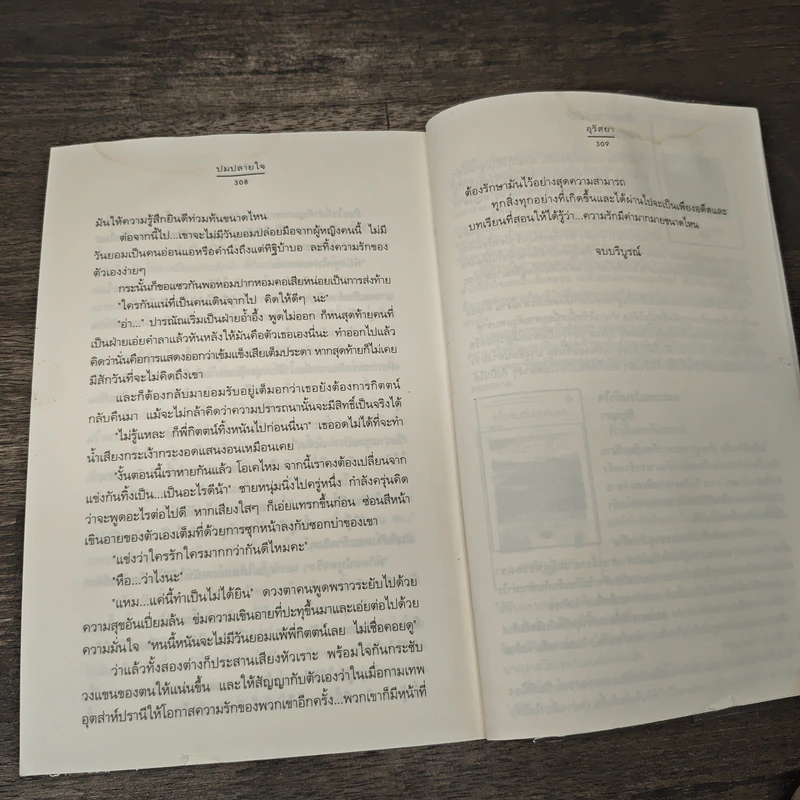 ปมปลายใจ
308
มันให้ความรู้สึกยินดีท่วมทันขนาดไหน
ต่อจากนี้ไป...เขาจะไม่มีวันยอมปล่อยมือจากผู้หญิงคนนี้ ไม่มี
วันยอมเป็นคนอ่อนแอหรือคำนึงถึงแต่ทิฐิบ้าบอ ละทิ้งความรักของ
ตัวเองง่ายๆ
กระนั้นก็ขอแซวกันพอหอมปากหอมคอเสียหน่อยเป็นการส่งท้าย
"ใครกันแน่ที่เป็นคนเดินจากไป คิดให้ดีๆ นะ"
"อ่า..." ปารณัณเริ่มเป็นฝ่ายอ้ำอึ้ง พูดไม่ออก ก็หนสุดท้ายคนที่
เป็นฝ่ายเอ่ยคำลาแล้วหันหลังให้มันคือตัวเธอเองนี่นะ ทำออกไปแล้ว
คิดว่านั่นคือการแสดงออกว่าเข้มแข็งเสียเต็มประดา หากสุดท้ายก็ไม่เคย
มีสักวันที่จะไม่คิดถึงเขา
และก็ต้องกลับมายอมรับอยู่เต็มอกว่าเธอยังต้องการกิตตน์
กลับคืนมา แม้จะไม่กล้าคิดว่าความปรารถนานั้นจะมีสิทธิ์เป็นจริงได้
"ไม่รู้แหละ ก็พี่กิตตน์ทิ้งหนันไปก่อนนี่นา" เธออดไม่ได้ที่จะทำ
น้ำเสียงกระเง้ากระงอดแสนงอนเหมือนเคย
"งั้นตอนนี้เราหายกันแล้ว โอเคไหม จากนี้เราคงต้องเปลี่ยนจาก
แข่งกันทิ้งเป็น...เป็นอะไรดีน้า" ชายหนุ่มนิ่งไปครู่หนึ่ง กำลังครุ่นคิด
ว่าจะพูดอะไรต่อไปดี หากเสียงใสๆ ก็เอ่ยแทรกขึ้นก่อน ซ่อนสีหน้า
เขินอายของตัวเองเต็มที่ด้วยการซุกหน้าลงกับซอกบ่าของเขา
"แข่งว่าใครรักใครมากกว่ากันดีไหมคะ"
"หือ...ว่าไงนะ"
"แหม...แค่นี้ทำเป็นไม่ได้ยิน" ดวงตาคนพูดพราวระยับไปด้วย
ความสุขอันเปี่ยมล้น ข่มความเขินอายที่ปะทุขึ้นมาและเอ่ยต่อไปด้วย
ความมั่นใจ "หนนี้หนันจะไม่มีวันยอมแพ้พี่กิตตน์เลย ไม่เชื่อคอยดู"
ว่าแล้วทั้งสองต่างก็ประสานเสียงหัวเราะ พร้อมใจกันกระชับ
วงแขนของตนให้แน่นขึ้น และให้สัญญากับตัวเองว่าในเมื่อกามเทพ
อุตส่าห์ปรานีให้โอกาสความรักของพวกเขาอีกครั้ง...พวกเขาก็มีหน้าที่
อุรัสยา
309
ต้องรักษามันไว้อย่างสุดความสามารถ
ทุกสิ่งทุกอย่างที่เกิดขึ้นและได้ผ่านไปจะเป็นเพียงอดีตและ
บทเรียนที่สอนให้ได้รู้ว่า...ความรักมีค่ามากมายขนาดไหน
จบบริบูรณ์